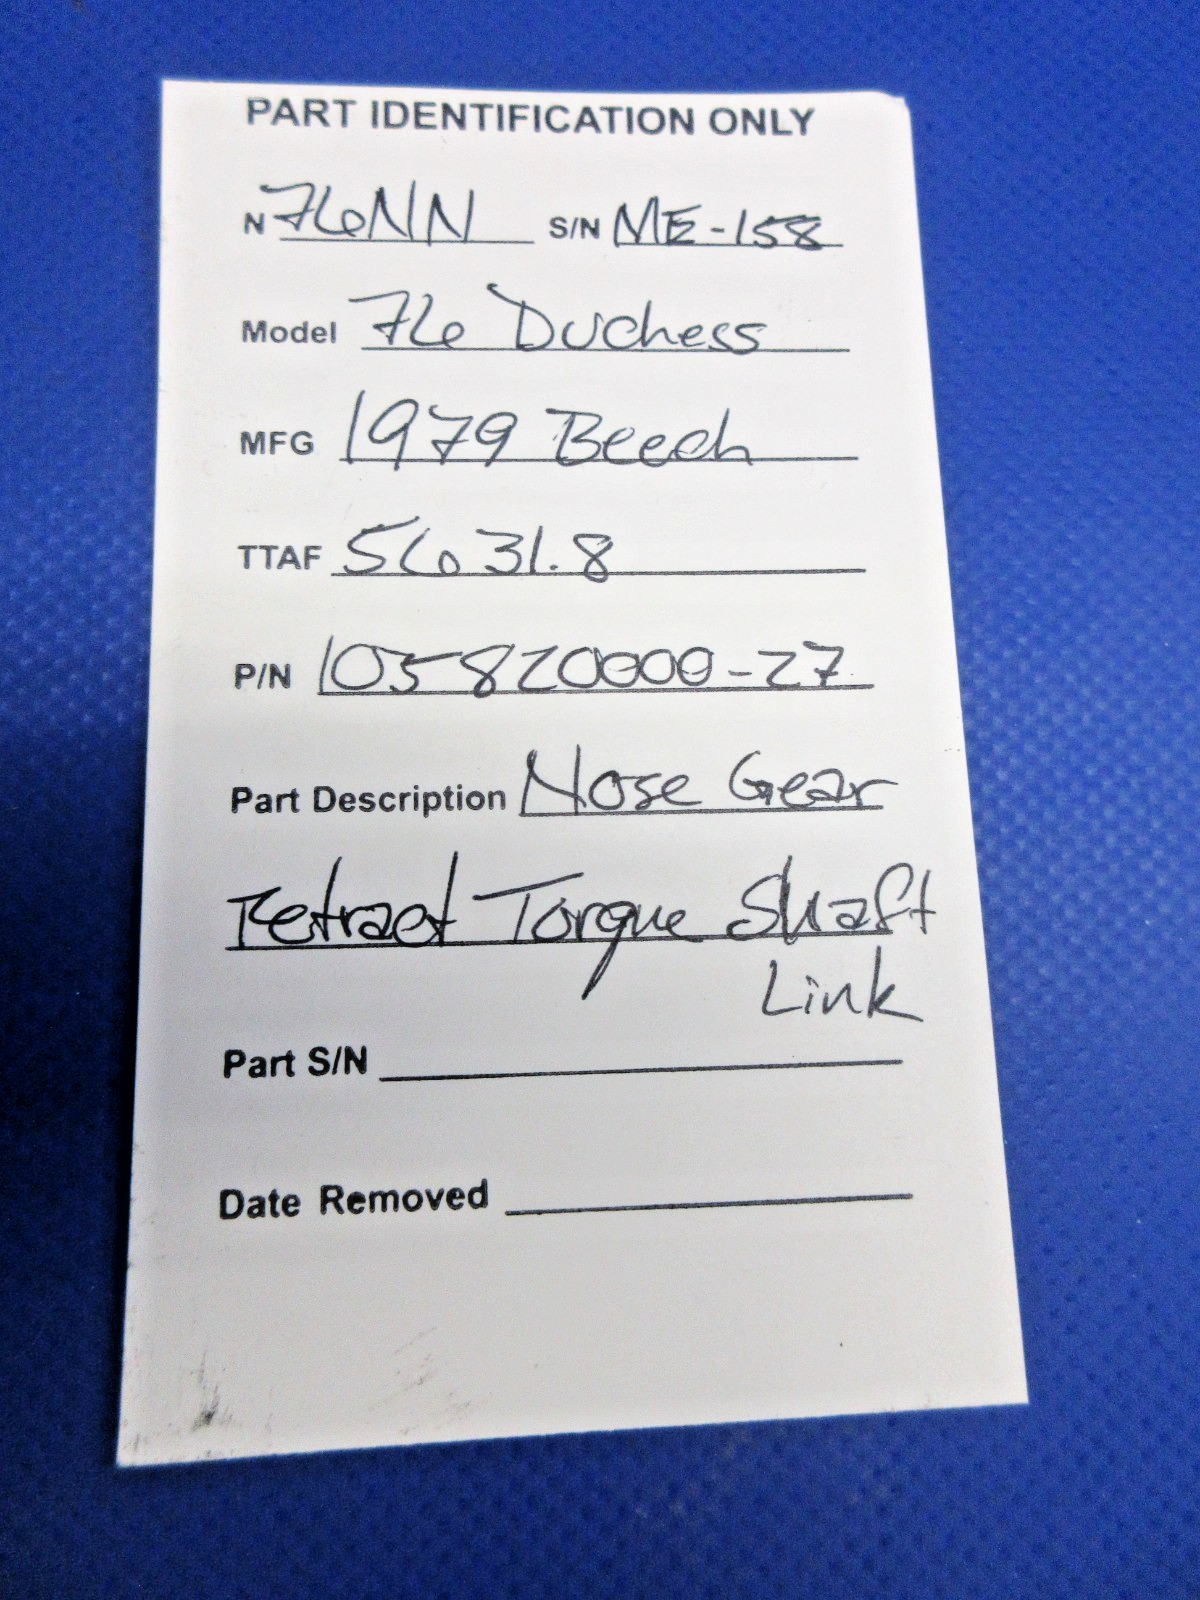 PART IDENTIFICATION ONLY
N 76NN S/N ME-158
Model 76 Duchess
MFG 1979 Beech
TTAF 5631.8
P/N 105820000-27
Part Description Nose Gear
retract Torque Shaft
Link
Part S/N
Date Removed